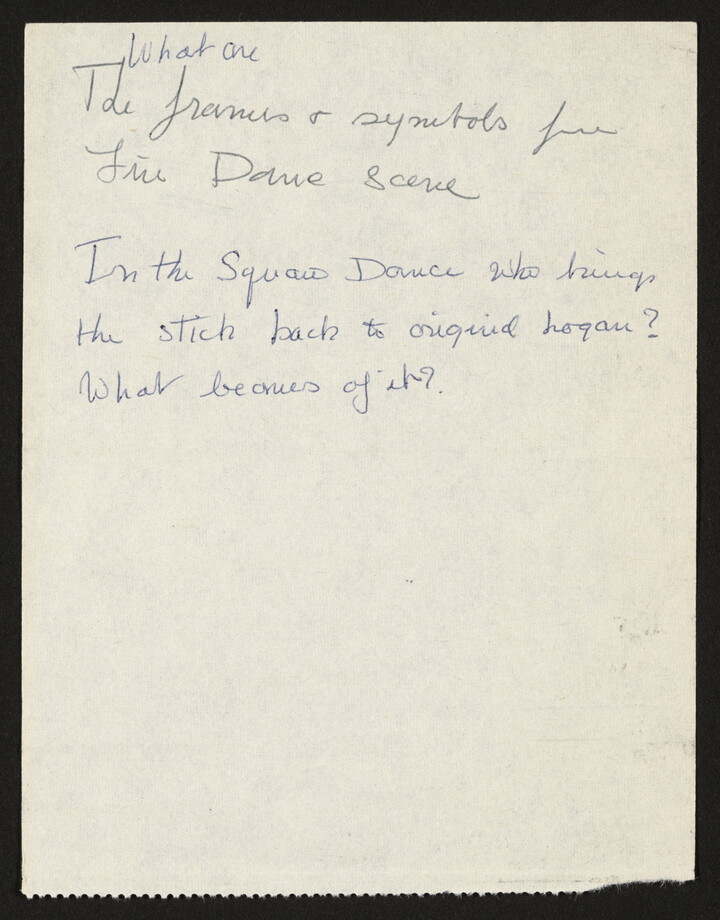 What are
The frames & symbols for
Fire Dance scene
In the Squaw Dance who brings
the stick back to original hogan?
What becomes of it?